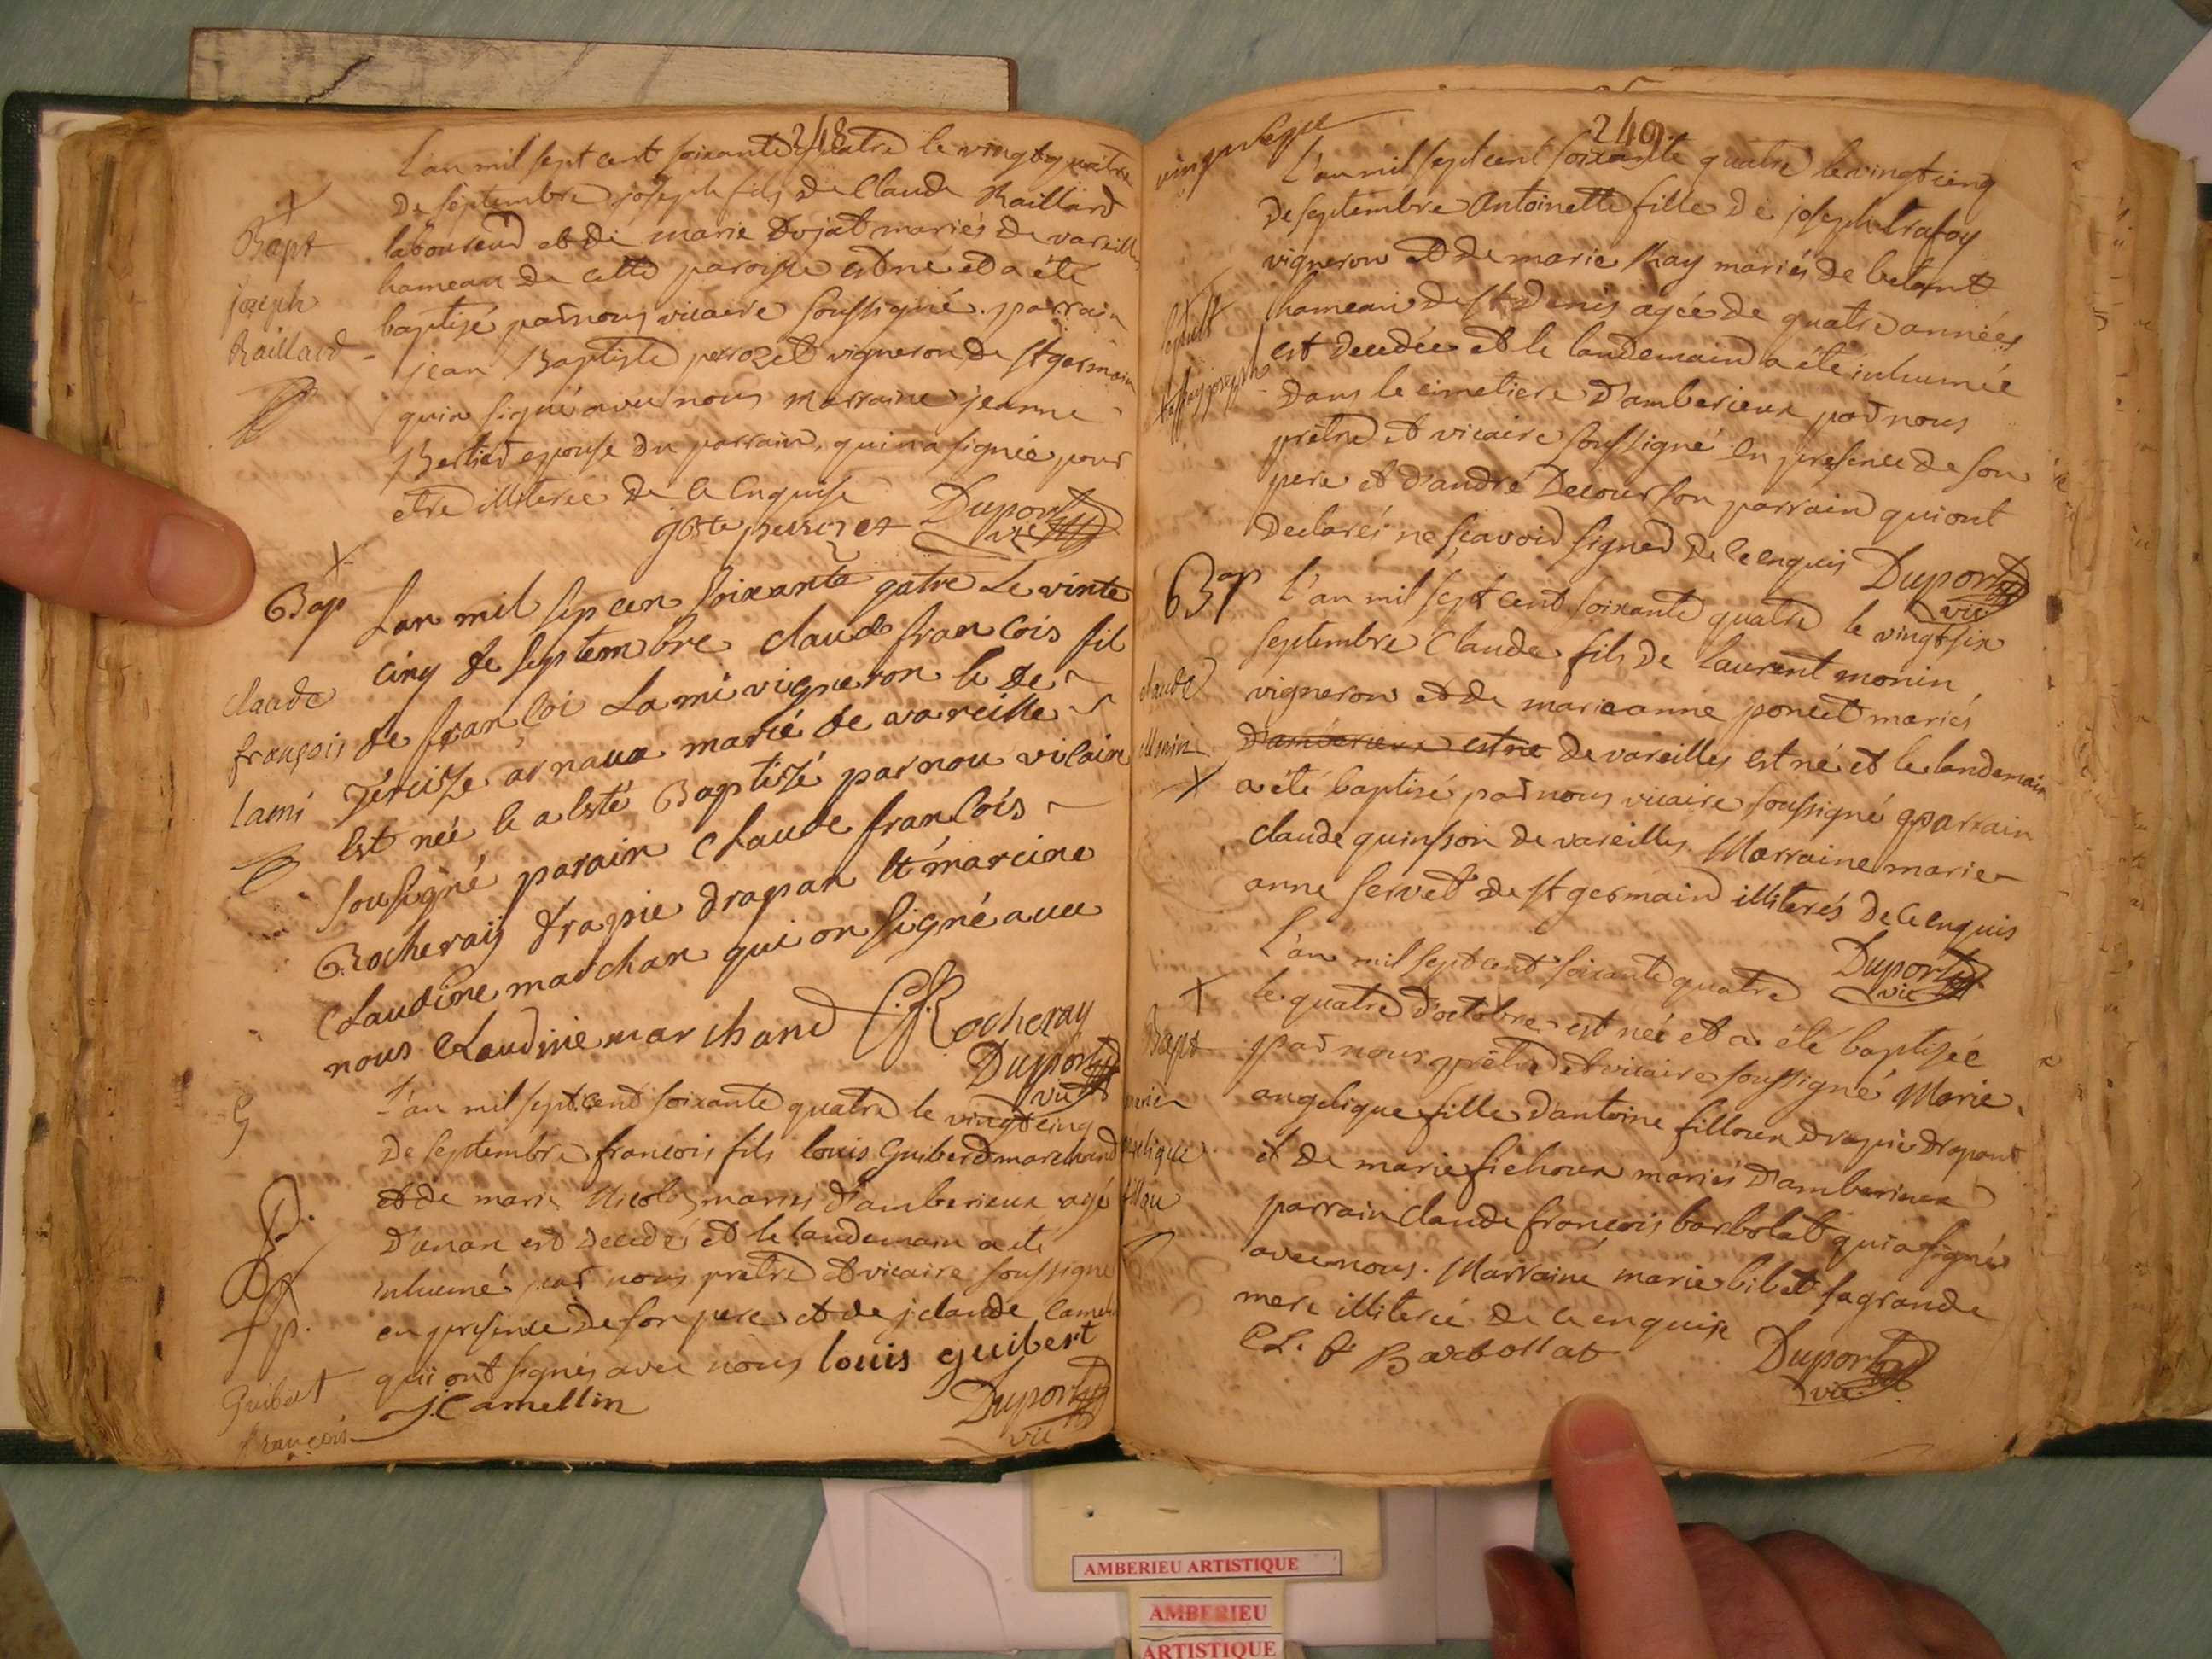 248
L'an mil sept cent soixante quatre le vingt quatre
de septembre joseph fils de Claude Raillard
laboureur et de marie Dujat mariés de vareilles
hameau de cette paroisse est né et a été
baptisé par nous vicaire soussigné. parrain
jean Baptiste perrozet vigneron de st germain
qui a signé avec nous marraine jeanne
Bertier epouse du parrain, qui n'a signée pour
etre illiterée de ce enquise
gBte perrozet Duport
vic
Bapt
joseph
Raillard
Bap
Lan mil sep cen soixante qatre Le vinte
cinq de septembre claude francois fil
de francoi Lami vigneron le de
Téreisse arnaua marié de vareille
Est née le a esté Baptizé par nou vicaire
sousigné parain claude francois
Rocheray drapie drapan et mareine
claudine marchan qui on signé avec
nous claudine marchand C.f Rocheray
Duport
vic
claude
françois
lami
L'an mil sept cent soixante quatre le vingt cinq
de septembre francois fils louis Guibert marchand
et de marie Nicole mariés d'amberieux agé
d'un an est decedé et le landemain a été
inhumé par nous pretre et vicaire soussigné
en presence de son pere et de j claude Camelin
qui ont signés avec nous louis guibert
J. Camellin Duport
vic
Guibert
françois
249
L'an mil sept cent soixante quatre le vingt cinq
de septembre Antoinette fille de joseph trafoy
vigneron et de marie Ray mariés de betant
hameau de st Denis agée de quatre années
est decedée et le landemain a été inhumée
dans le cimetiere d'amberieux par nous
prêtre et vicaire soussigné en presence de son
pere et d'andré Decourson parrain qui ont
declarés ne sçavoir signer de ce enquis Duport
vic
Bap
L'an mil sept cent soixante quatre le vingt six
septembre Claude fils de laurent monin
vigneron et de marieanne poncet mariés
d'amberieux est né de vareilles est né et le landemain
a été baptisé par nous vicaire soussigné parrain
claude quinson de vareilles Marraine marie
anne servet de st germain illiterés de ce enquis
Duport
vic
claude
Monin
L'an mil sept cent soixante quatre
le quatre d'octobre est née et a été baptisée
par nous prêtre et vicaire soussigné Marie
angelique fille d'antoine filloux drapier drapant
et de marie fichoux mariés d'amberieux
parrain claude françois barbolat qui a signé
avec nous. Marraine marie bibet sa grande
mere illiterée de ce enquise
CL. f Barbollat Duport
vic
Bapt
AMBERIEU ARTISTIQUE
AMBERIEU
ARTISTIQUE